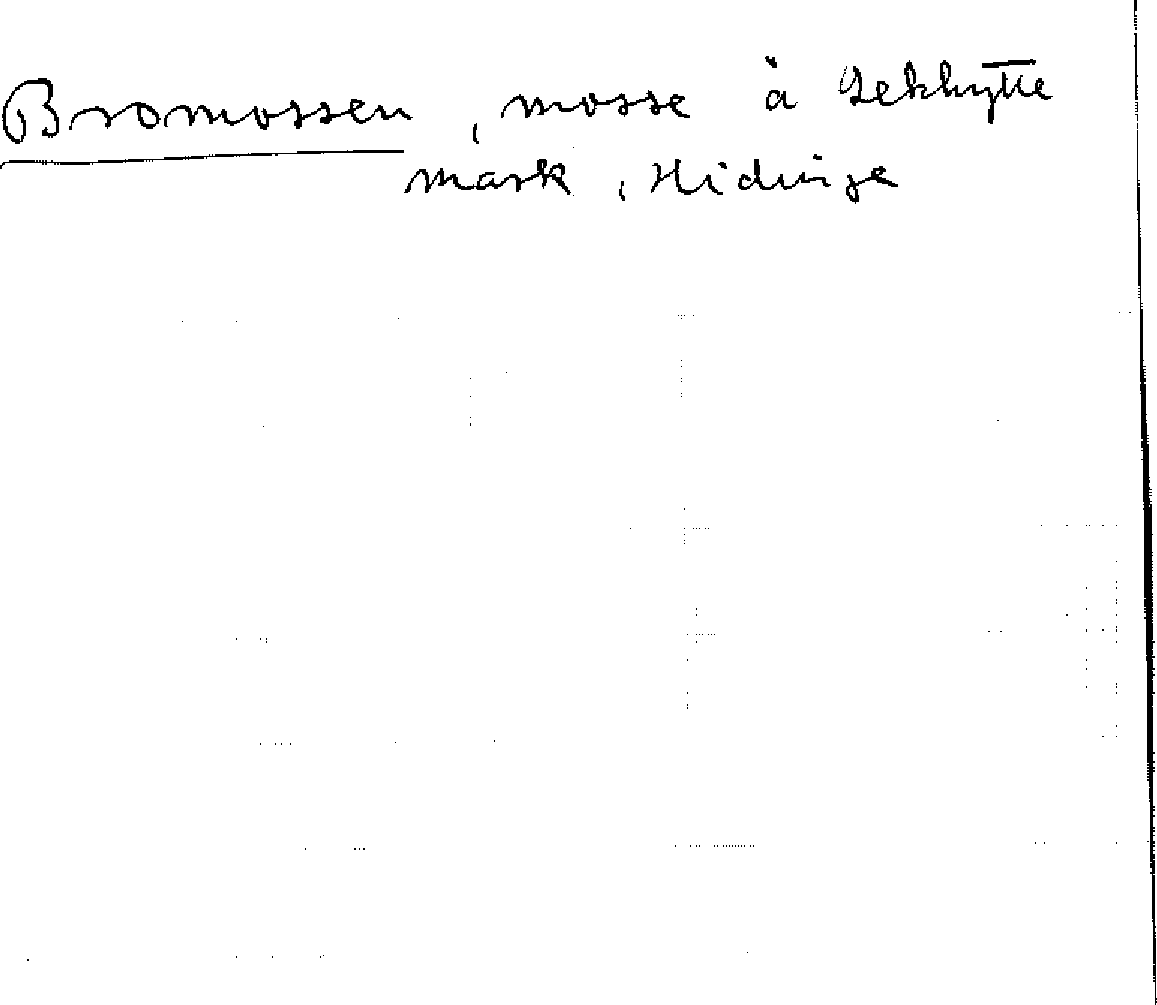 Bromossen, mosse å Lekhytte
mark, Hidinge